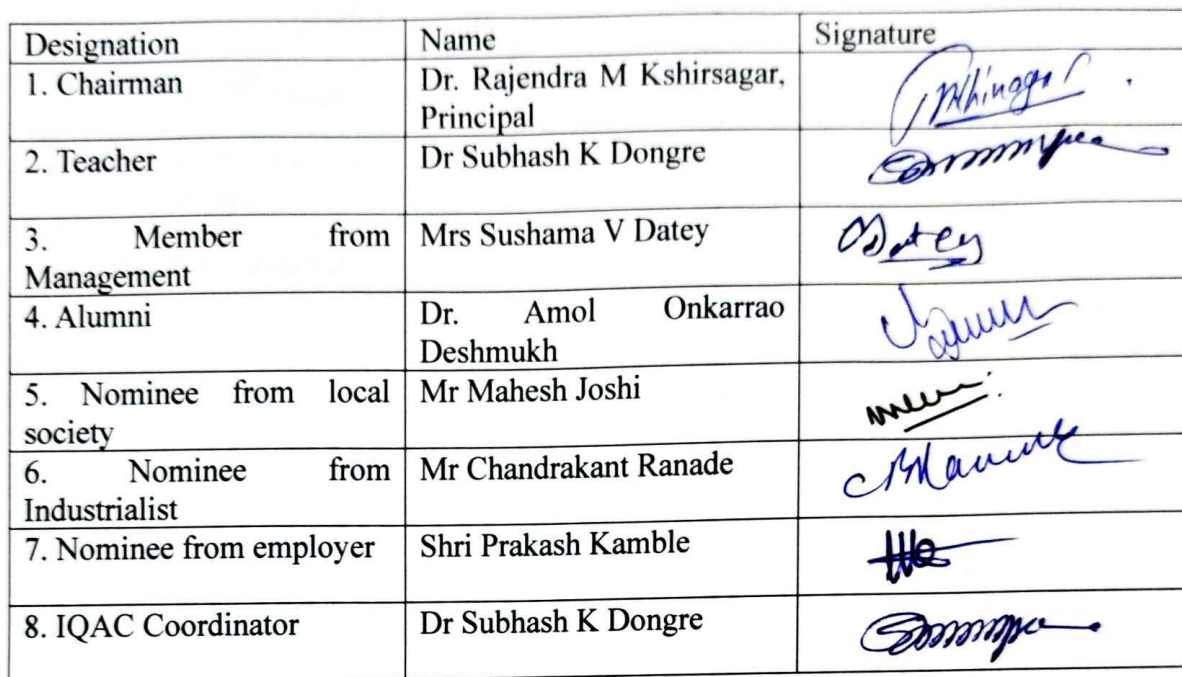 Designation Name Signature
1. Chairman Dr. Rajendra M Kshirsagar,
Principal
2. Teacher Dr Subhash K Dongre
3. Member from Mrs Sushama V Datey
Management Datey
4. Alumni Dr. Amol Onkarrao
Deshmukh
5. Nominee from local Mr Mahesh Joshi
society
6. Nominee from Mr Chandrakant Ranade
Industrialist
7. Nominee from employer Shri Prakash Kamble
8. IQAC Coordinator Dr Subhash K Dongre